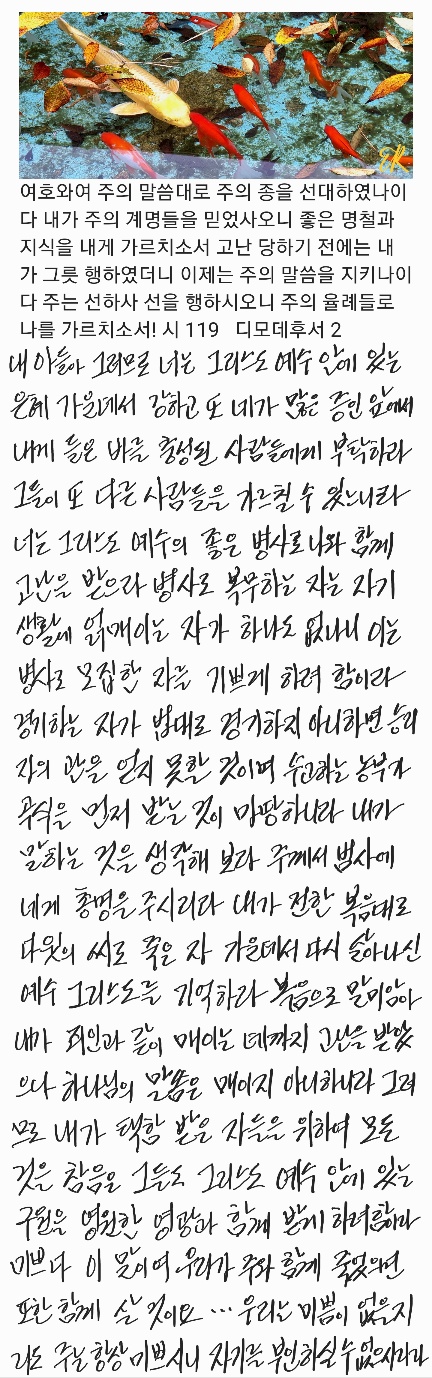 ER
여호와여 주의 말씀대로 주의 종을 선대하였나이
다 내가 주의 계명들을 믿었사오니 좋은 명철과
지식을 내게 가르치소서 고난 당하기 전에는 내
가 그릇 행하였더니 이제는 주의 말씀을 지키나이
다 주는 선하사 선을 행하시오니 주의 율례들로
나를 가르치소서! 시 119 디모데후서 2
내 아들아 그러므로 너는 그리스도 예수 안에 있는
은혜 가운데서 강하고 또 네가 많은 증인 앞에서
내게 들은 바를 충성된 사람들에게 부탁하라
그들이 또 다른 사람들을 가르칠 수 있느니라
너는 그리스도 예수의 좋은 병사로 나와 함께
고난을 받으라 병사로 복무하는 자는 자기
생활에 얽매이는 자가 하나도 없나니 이는
병사로 모집한 자를 기쁘게 하려 함이라
경기하는 자가 법대로 경기하지 아니하면 승리
자의 관을 얻지 못할 것이며 수고하는 농부가
곡식을 먼저 받는 것이 마땅하니라 내가
말하는 것을 생각해 보라 주께서 범사에
네게 총명을 주시리라 내가 전한 복음대로
다윗의 씨로 죽은 자 가운데서 다시 살아나신
예수 그리스도를 기억하라 복음으로 말미암아
내가 죄인과 같이 매이는 데까지 고난을 받았
으나 하나님의 말씀은 매이지 아니하니라 그러
므로 내가 택함 받은 자들을 위하여 모든
것을 참음은 그들도 그리스도 예수 안에 있는
구원을 영원한 영광과 함께 받게 하려함이라
미쁘다 이 말이여 우리가 주와 함께 죽었으면
또한 함께 살 것이요 … 우리는 미쁨이 없을지
라도 주는 항상 미쁘시니 자기를 부인하실 수 없으시리라